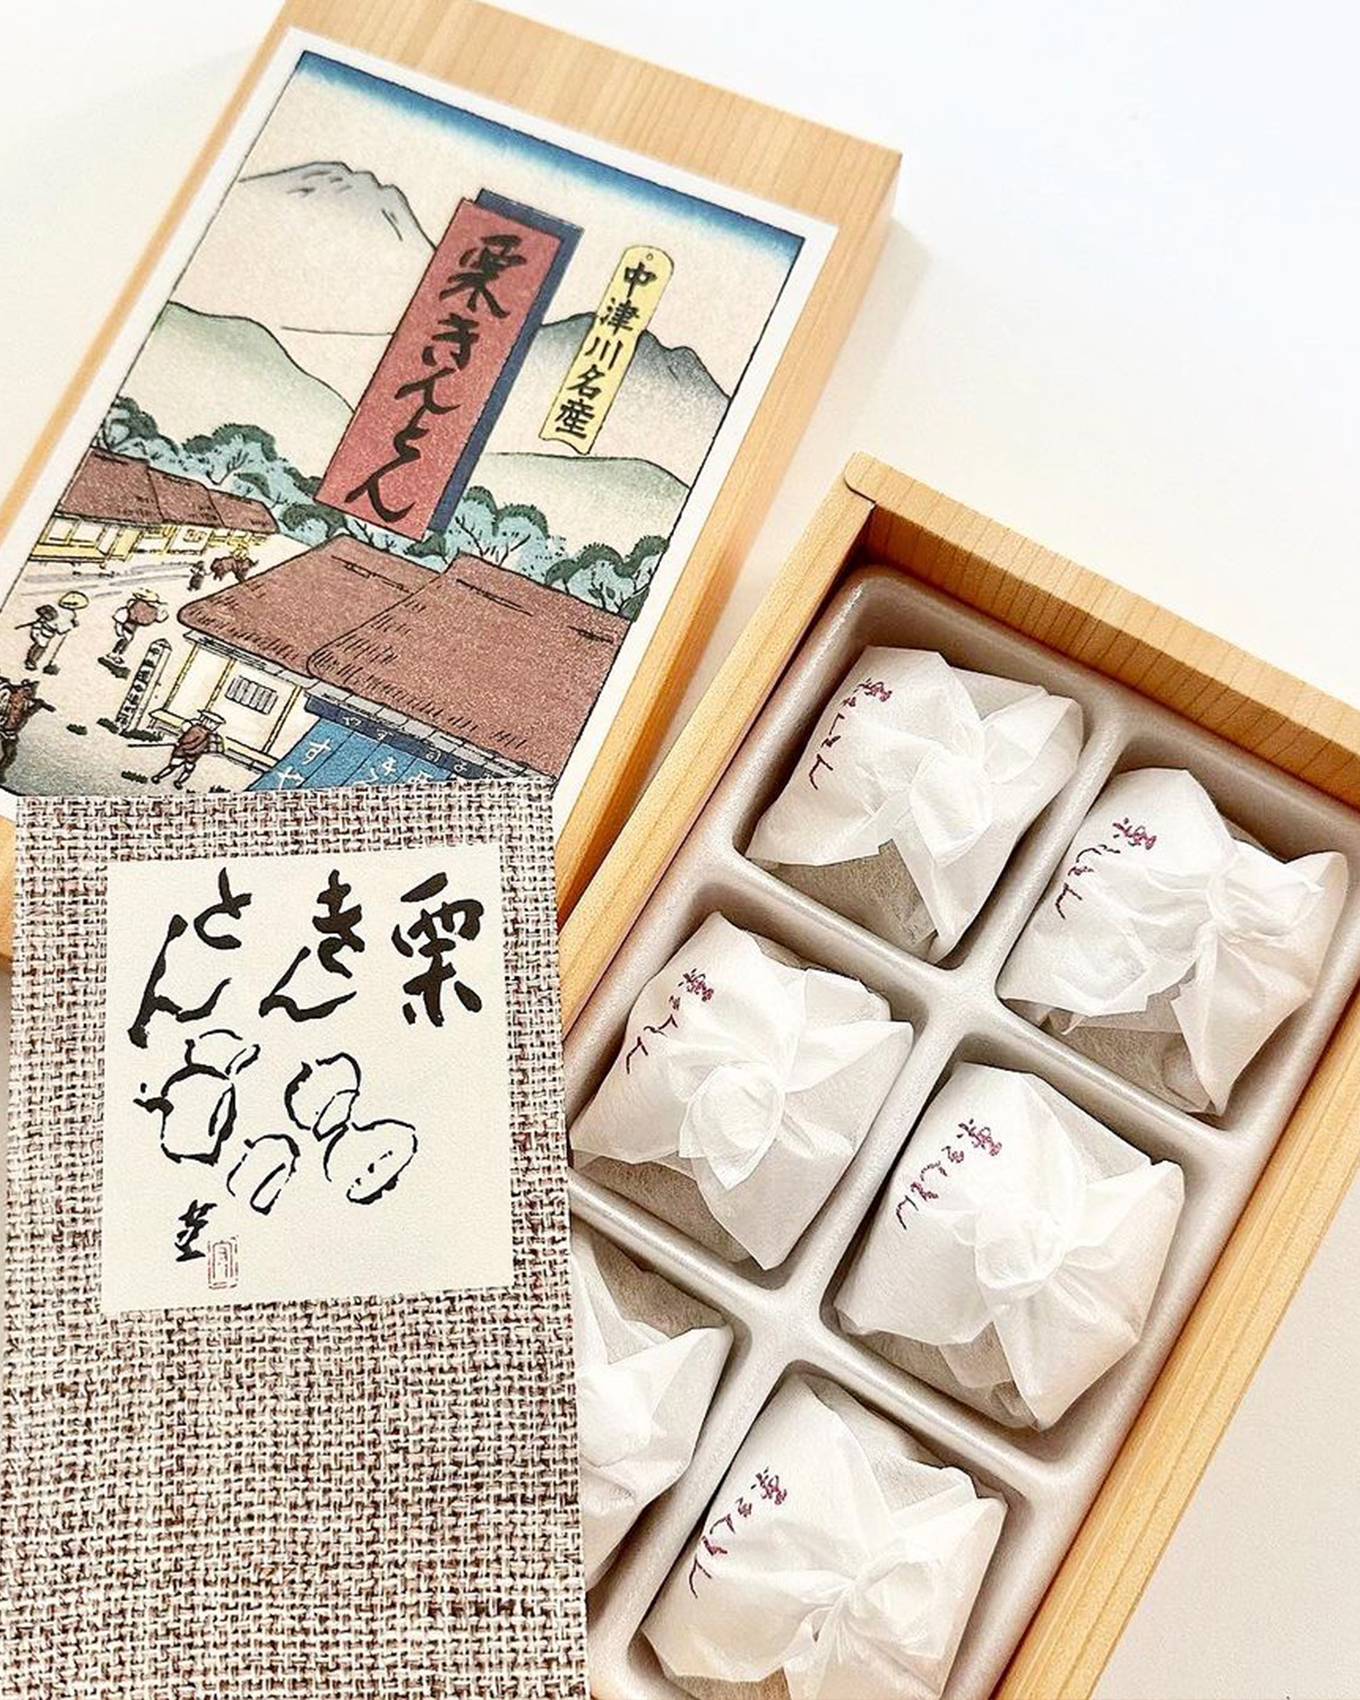 栗きんとん
中津川名産
栗
きん
とん
栗きんとん
栗きんとん
栗きんとん
栗きんとん
栗きんとん